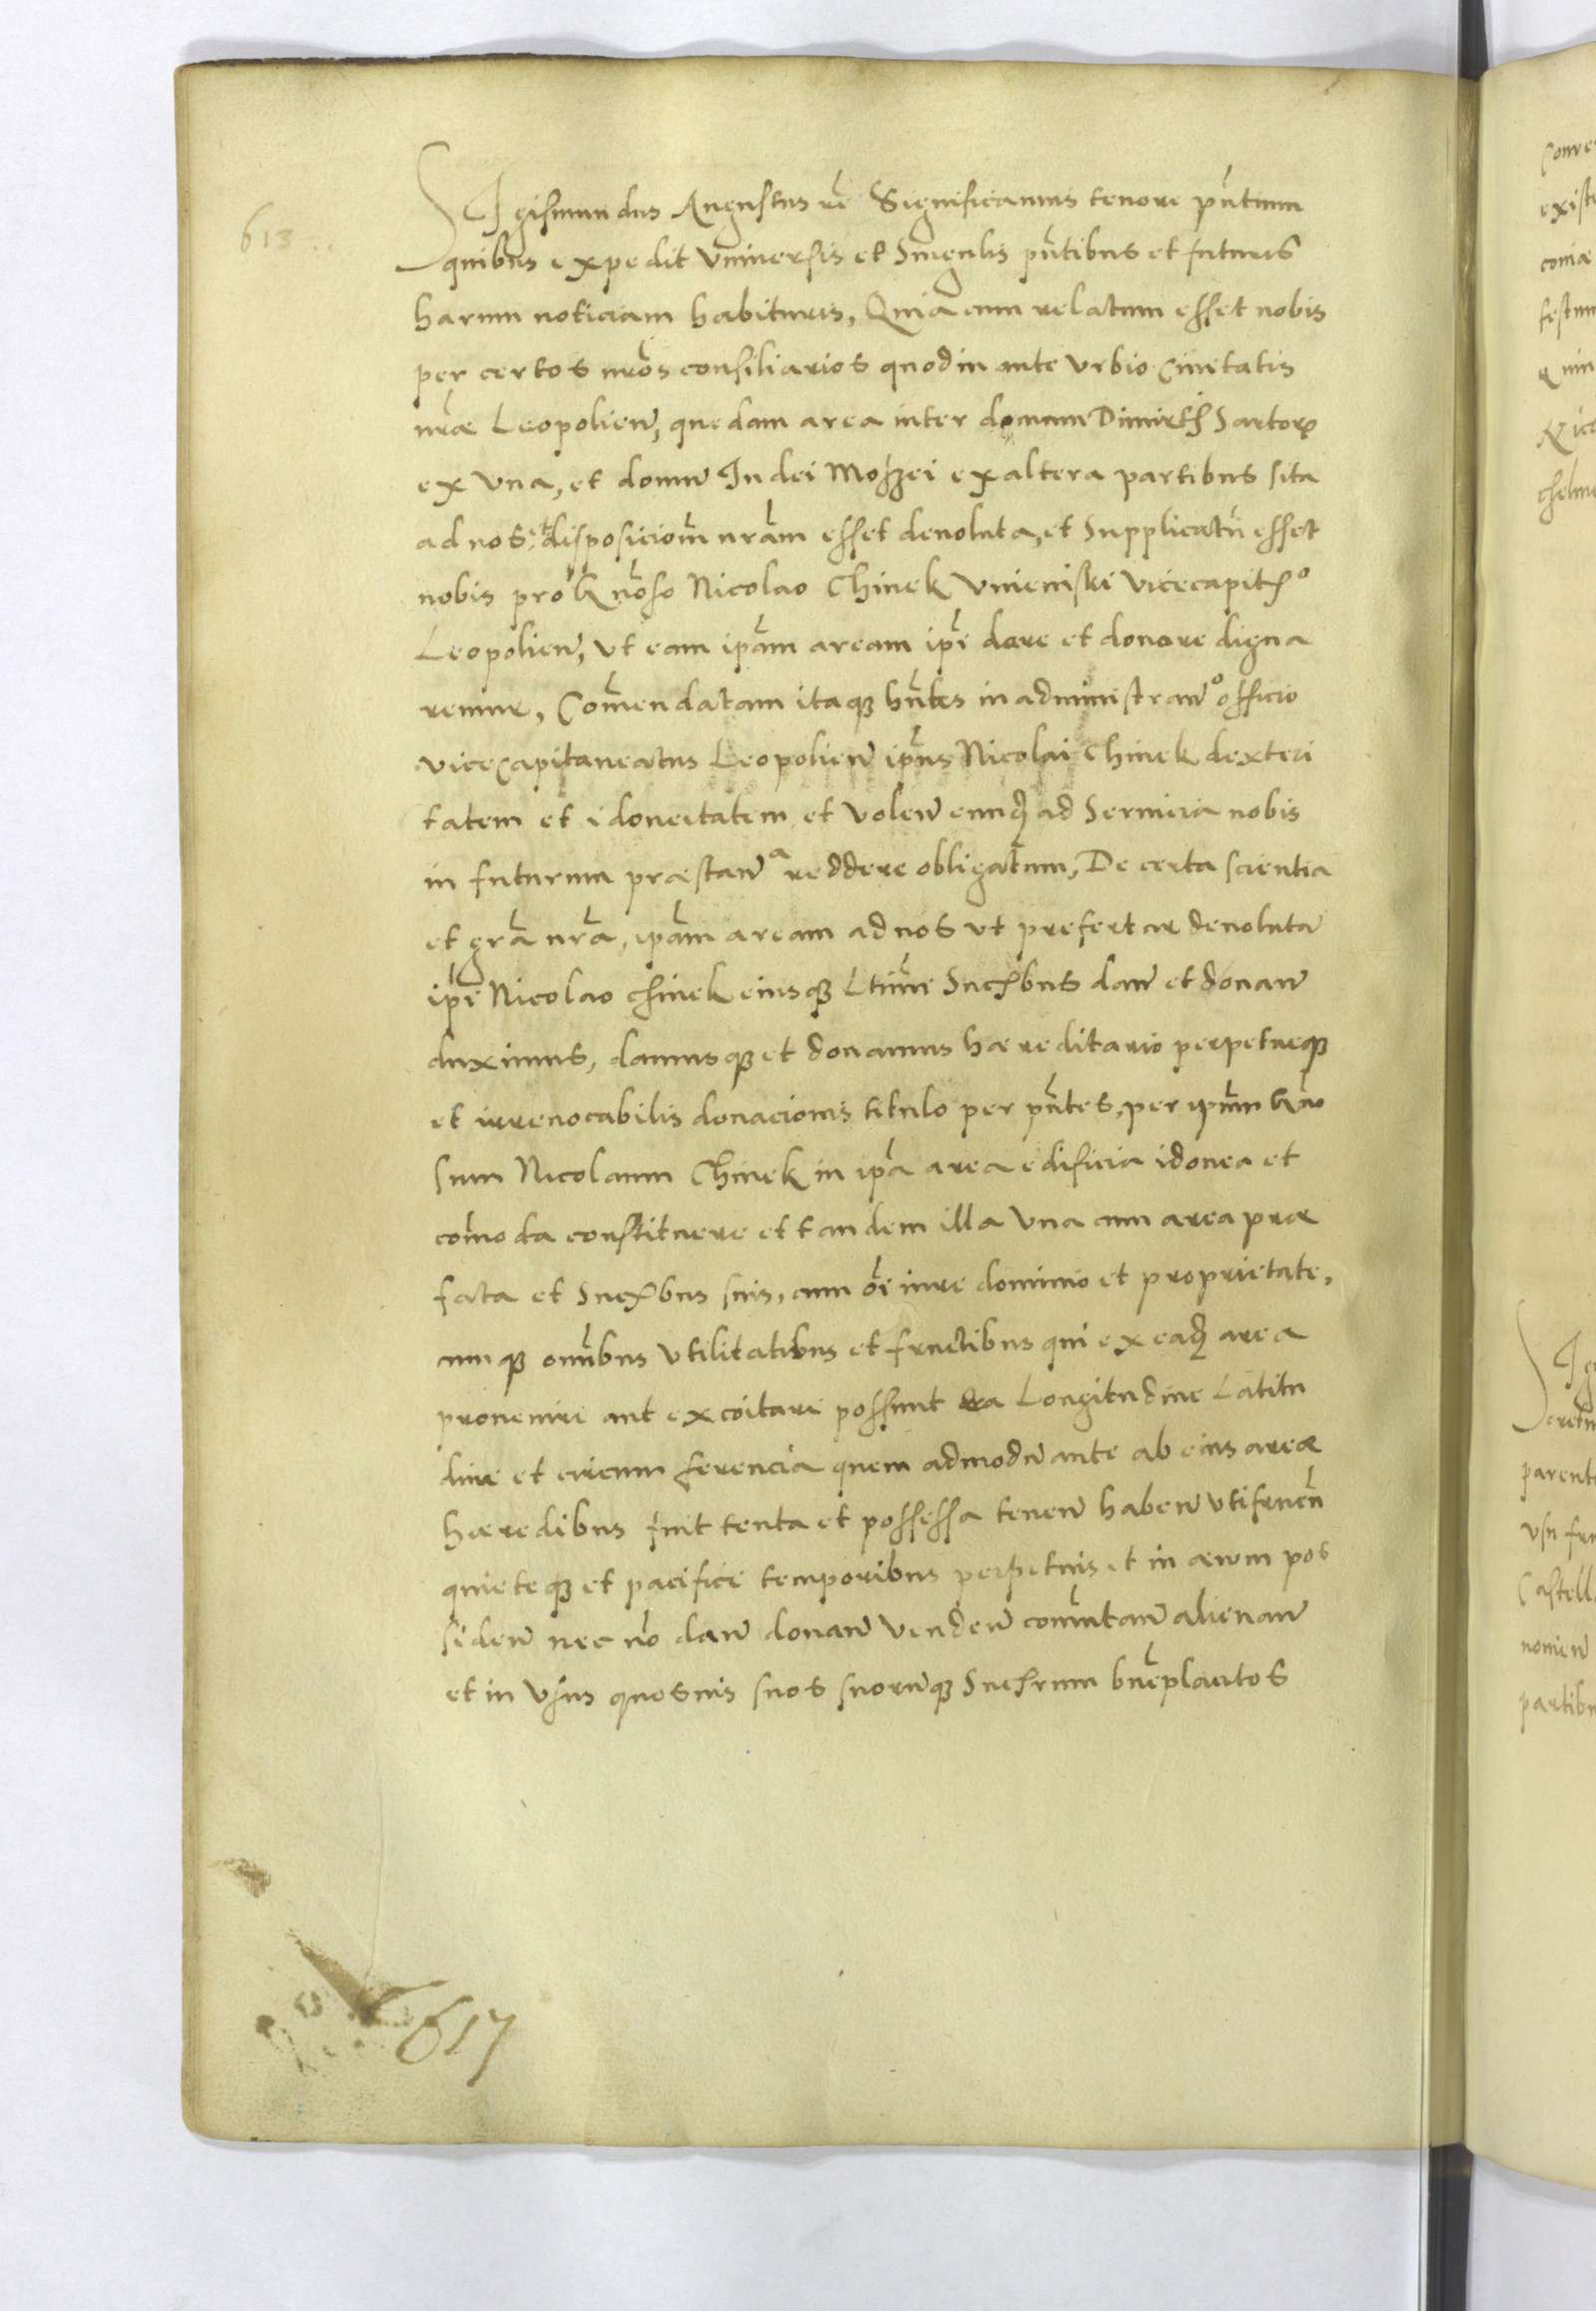 613
Sigismundus Augustus rē Significamus tenore pñtium
quibus expedit Vniuersis et Singulis pñtibus et futuris
harum noticiam habituris, Quia cum relatum esset nobis
per certos nr̃os consiliarios quod in ante vrbio Ciuitatis
nr̃æ Leopolien̄, quedam area inter domum Dimitrẜ Sartorꝭ
ex vna, et domū Iudei Moszei ex altera partibus sita
ad nos et disposiciom̃ nr̃am esset deuoluta, et Supplicatũ esset
nobis pro Gñoso Nicolao Chinek Vnieniski Vicecapitẜo
Leopolien̄, vt eam ip̃am aream ip̃i dare et donare digna
remur, Com̃endatam itaqꝫ hñtes in administran̄o officio
vicecapitaneatus Leopolien̄ ip̃ius Nicolai Chinek dexteri
tatem et idoneitatem, et volen̄ eundꝫ ad Seruicia nobis
in futurum præstan̄a reddere obligatum, De certa scientia
et gr̃a nr̃a, ip̃am aream ad nos vt prefertur deuoluta
ip̃i Nicolao Chinek eiusqꝫ Ltim̃e Sucẜbus dan̄ et donan̄
duximus, damusqꝫ et donamus hæreditario perpetueqꝫ
et irreuocabilis donacionis titulo per pñtes, per ip̃um Gño
sum Nicolaum Chinek in ip̃a area edificia idonea et
com̃oda constituere et tandem illa Vna cum area præ
fata et Sucẜbus suis, cum õi iure dominio et proprietate,
cumqꝫ omñbus vtilitatibus et fructibus qui ex eadꝫ area
prouenire aut excoitari possunt ea Longitudine Latitu
dine et circumferencia quem admodū ante ab eius areæ
hæredibus fuit tenta et possessa tenen̄ haben̄ vtifrueñ
quieteqꝫ et pacifice temporibus perpetuis et in æuum pos
siden̄ nec nõ dan̄ donan̄ venden̄ com̃utan̄ alienan̄
et in vsus quosuis suos suorūqꝫ Sucẜrum bñeplacitos
617